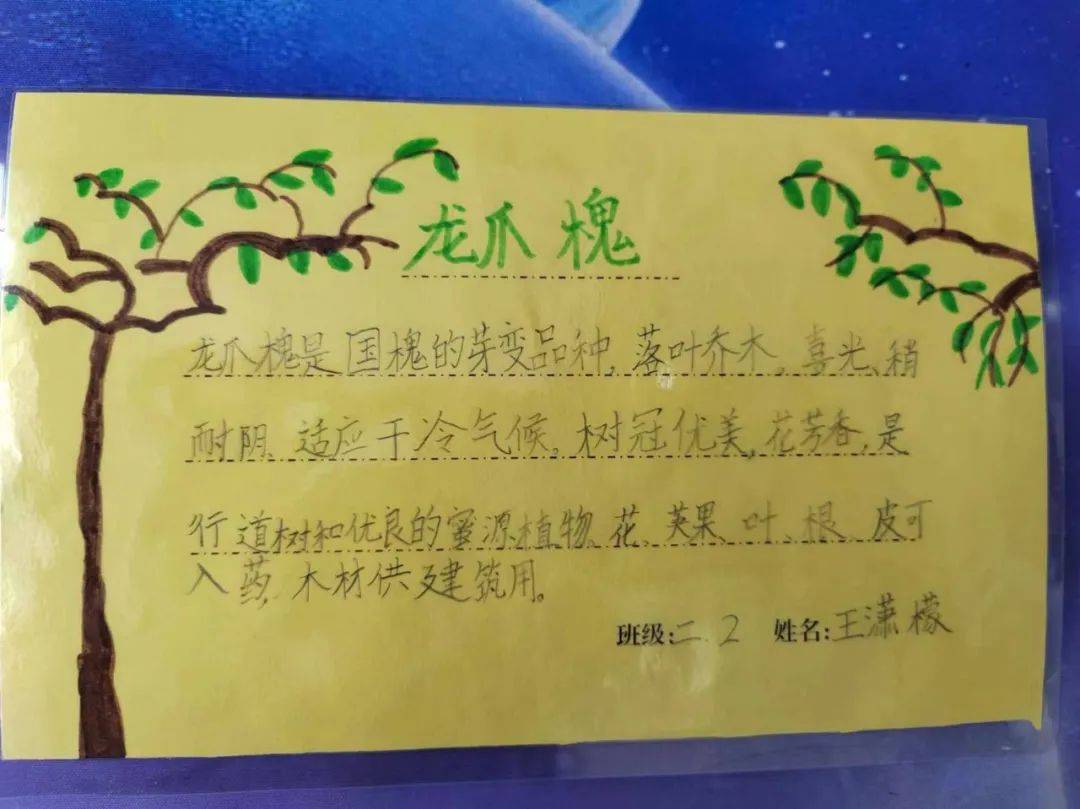 龙爪槐
龙爪槐是国槐的芽变品种,落叶乔木,喜光、稍
耐阴、适应干冷气候,树冠优美,花芳香,是
行道树和优良的蜜源植物、花、荚果、叶、根、皮可
入药,木材供建筑用。
班级:二.2 姓名:王潇檬